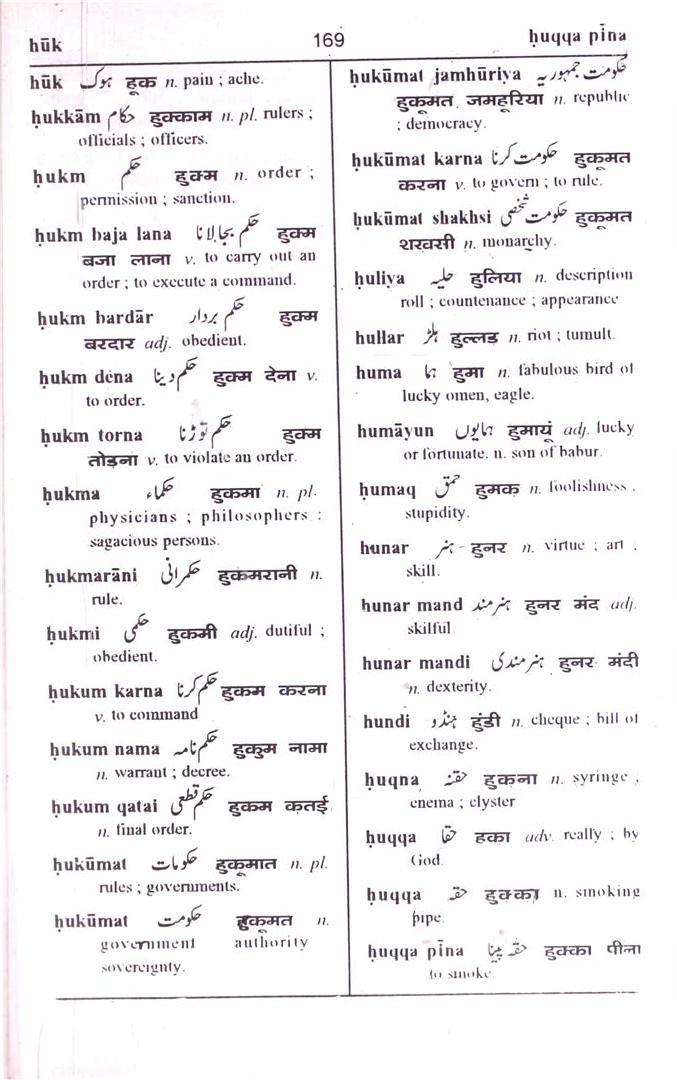 hūk
169
ḥuqqa pīna
hūk ہوک हूक n. pain ; ache.
ḥukkām حکام हुक्काम n. pl. rulers ;
officials ; officers.
ḥukm حکم हुक्म n. order ;
permission ; sanction.
ḥukm baja lana حکم بجا لانا हुक्म
बजा लाना v. to carry out an
order ; to execute a command.
ḥukm bardār حکم بردار हुक्म
बरदार adj. obedient.
ḥukm dena حکم دینا हुक्म देना v.
to order.
ḥukm torna حکم توڑنا हुक्म
तोड़ना v. to violate an order.
ḥukma حکماء हुकमा n. pl.
physicians ; philosophers ;
sagacious persons.
ḥukmarāni حکمرانی हुकमरानी n.
rule.
ḥukmi حکمی हुकमी adj. dutiful ;
obedient.
ḥukum karna حکم کرنا हुकम करना
v. to command
ḥukum nama حکم نامہ हुकुम नामा
n. warrant ; decree.
ḥukum qatai حکم قطعی हुकम कतई
n. final order.
ḥukūmat حکومات हुकूमात n. pl.
rules ; governments.
ḥukūmat حکومت हुकूमत n.
government authority
sovereignty.
ḥukūmat jamhūriya حکومت جمہوریہ
हुकूमत जमहूरिया n. republic
; democracy.
ḥukūmat karna حکومت کرنا हुकूमत
करना v. to govern ; to rule.
ḥukūmat shakhsi حکومت شخصی हुकूमत
शख्सी n. monarchy.
ḥuliya حلیہ हुलिया n. description
roll ; countenance ; appearance
hullar ہلڑ हुल्लड n. riot ; tumult.
huma ہما हुमा n. fabulous bird of
lucky omen, eagle.
humāyun ہمایوں हुमायूं adj. lucky
or fortunate. n. son of babur.
ḥumaq حمق हुमक n. foolishness .
stupidity.
hunar ہنر - हुनर n. virtue ; art .
skill.
hunar mand ہنر مند हुनर मंद adj.
skilful
hunar mandi ہنر مندی हुनर मंदी
n. dexterity.
hundi ہنڈو हुंडी n. cheque ; bill of
exchange.
ḥuqna حقنہ हुकना n. syringe ,
enema ; clyster
ḥuqqa حقا हका adv. really ; by
God.
ḥuqqa حقہ हुक्का n. smoking
pipe.
ḥuqqa pīna حقہ پینا हुक्का पीना
to smoke.